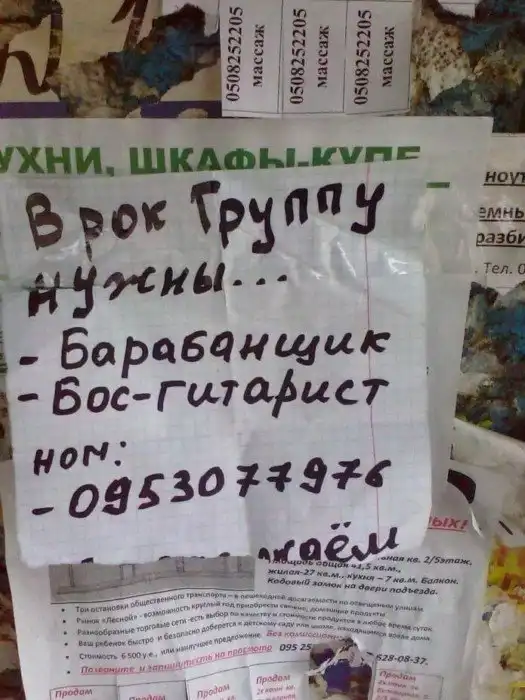 0508252205
массаж
0508252205
массаж
0508252205
массаж
УХНИ, ШКАФЫ-КУПЕ
В рок Группу
нужны...
- Барабанщик
- Бос-гитарист
ном:
- 0953077976
ноут
емны
разби
. Тел. 0
ЫХ!
ная кв. 2/5этаж.
жилая-27 кв.м., кухня - 7 кв.м. Балкон.
Кодовый замок на двери подъезда.
• Три остановки общественного транспорта – в пешеходной досягаемости по освещенным улицам
• Рынок «Лесной» - возможность круглый год приобретать свежие, домашние продукты
• Разнообразные торговые сети
• Ваш ребенок быстро и безопасно доберется к детскому саду или школе
• Стоимость 6 500 у.е., или наилучшее предложение. Без комиссионных
• Позвоните и запишитесь на просмотр 095 25
- 628-08-37.
Продам
Продам
Продам
Продам
Продам